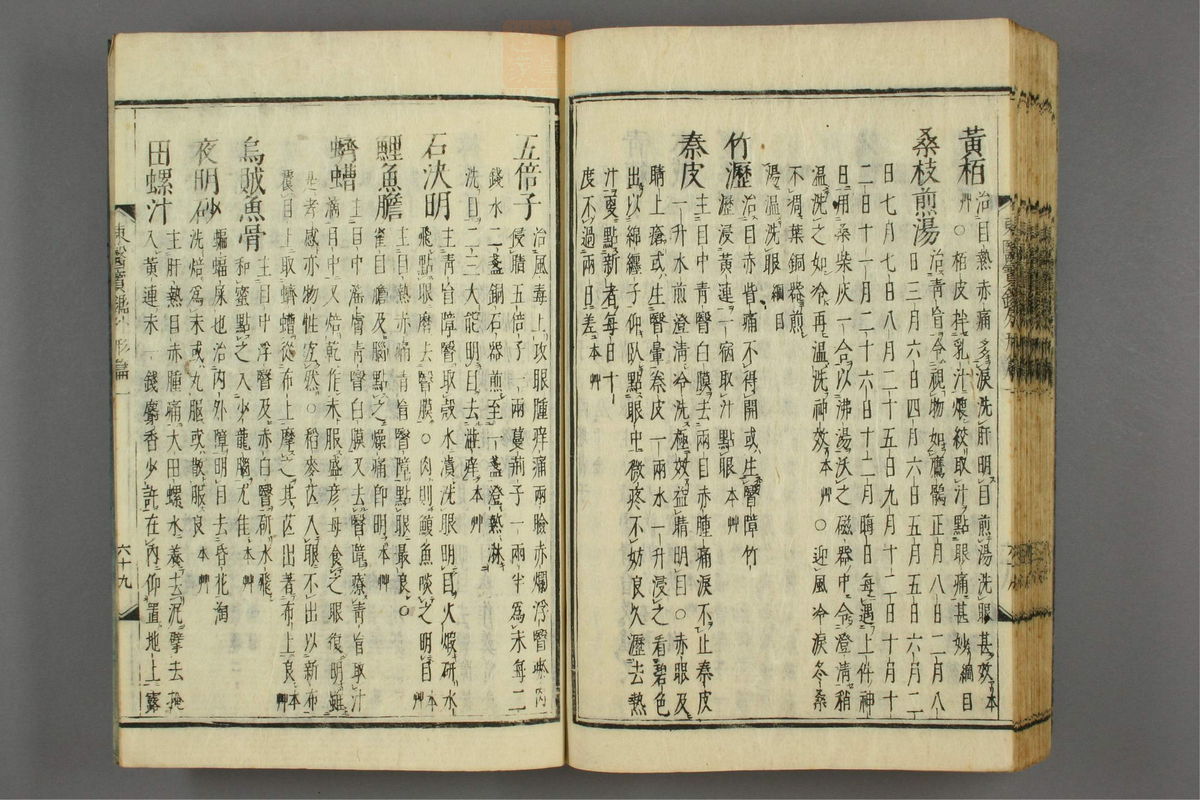 黃栢 治目熱赤痛多淚洗肝明目煎湯洗眼甚妙本
艸○栢皮拌乳汁煨絞取汁點眼痛甚妙綱目
桑枝煎湯 治靑盲令視物如鷹鶻正月八日二月八
日三月六日四月六日五月五日六月二
日七月七日八月二十五日九月十二日十月十
二日十一月二十六日十二月晦日每遇上件神
日用桑柴灰一合以沸湯沃之磁器中令澄淸稍
溫洗之如冷再溫洗神效本艸○迎風冷淚冬桑
不凋葉銅器煎
湯溫洗眼綱目
竹瀝 治目赤眥痛不得開或生瞖障竹
瀝浸黃連一宿取汁點眼本艸
秦皮 主目中靑瞖白膜去兩目赤腫痛淚不止秦皮
一升水煎澄淸冷洗極效益睛明目○赤眼及
睛上瘡或生瞖暈秦皮一兩水一升浸之看碧色
出以綿纏子仰臥點眼中微疼不妨良久瀝去熱
汁更點新者每日十
度不過兩日差本艸
五倍子 治風毒上攻眼腫痒痛兩瞼赤爛浮瞖瘀肉
侵睛五倍子一兩蔓荊子一兩半爲末每二
錢水二盞銅石器煎至一盞澄熱淋
洗日二三大能明目去澁痒本艸
石決明 主靑盲障瞖取殼水漬洗眼明目火煆硏水
飛點眼磨去瞖膜○肉則鰒魚啖之明目本艸
鯉魚膽 主目熱赤痛靑盲瞖障點眼最良○
雀目膽及腦點之燥痛卽明本艸
蠐螬 主目中滛膚靑瞖白膜又去瞖障療靑盲取汁
滴目中又焙乾作末服盛彦母食之眼復明雖
是孝感亦物性宜然○稻麥芒入眼不出以新布
覆目上取蠐螬從布上摩之其芒出著布上良本艸
烏賊魚骨 主目中浮瞖及赤白瞖硏水飛
和蜜點之入少龍腦尤佳本艸
夜明砂 蝙蝠屎也治內外障明目去昏花淘
洗焙爲末或丸服或散服良本艸
田螺汁 主肝熱目赤腫痛大田螺水養去泥擘去掩
入黃連末一錢麝香少許在內仰置地上露
東醫寶鑑外形篇一
六十九